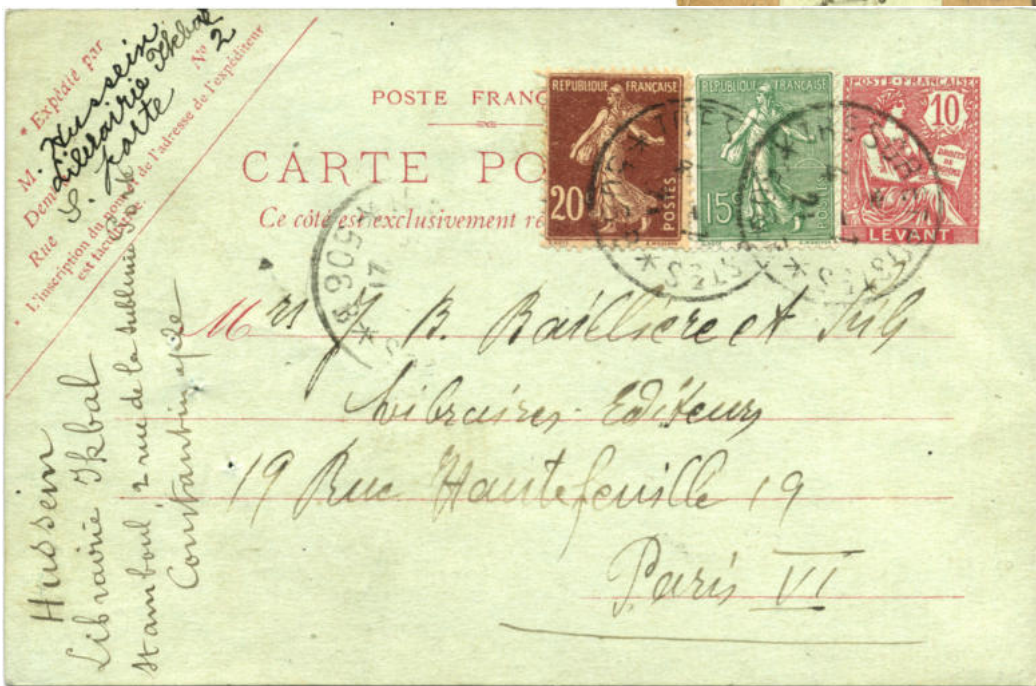 * Expédié par
M. Hussein
Librairie Ikbal
S. Porte Nº 2
Rue
L'inscription du nom et de l'adresse de l'expéditeur
est facultative.
POSTE FRANÇ
CARTE PO
Ce côté est exclusivement ré
REPUBLIQUE FRANÇAISE
20
POSTES
REPUBLIQUE FRANÇAISE
15c
POSTES
POSTE FRANÇAISE
10
DROITS DE L'HOMME
LEVANT
5068
17
Mrs J B. Baillière et Fils
Libraires-Editeurs
19 Rue Hautefeuille 19
Paris VI
Hussein
Librairie Ikbal
Stamboul, 2 rue de la Sublime Porte
Constantinople